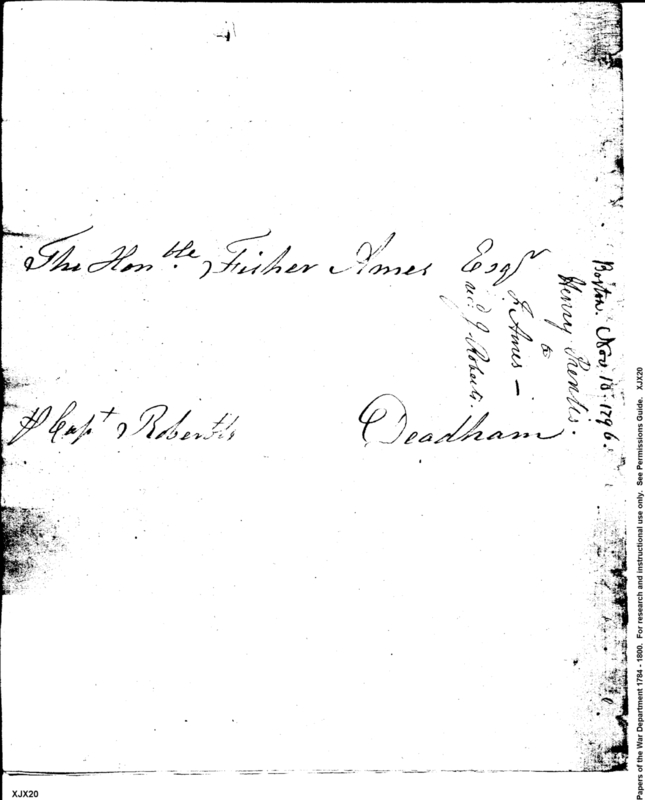 The Honble. Fisher Ames Esqr
⅌ Capt Roberts
Deadham
Boston. Nov. 18. 1796.
Henry Prentis.
to
F. Ames —
recd. J Roberts.
Papers of the War Department 1784 - 1800. For research and instructional use only. See Permissions Guide. XJX20
XJX20